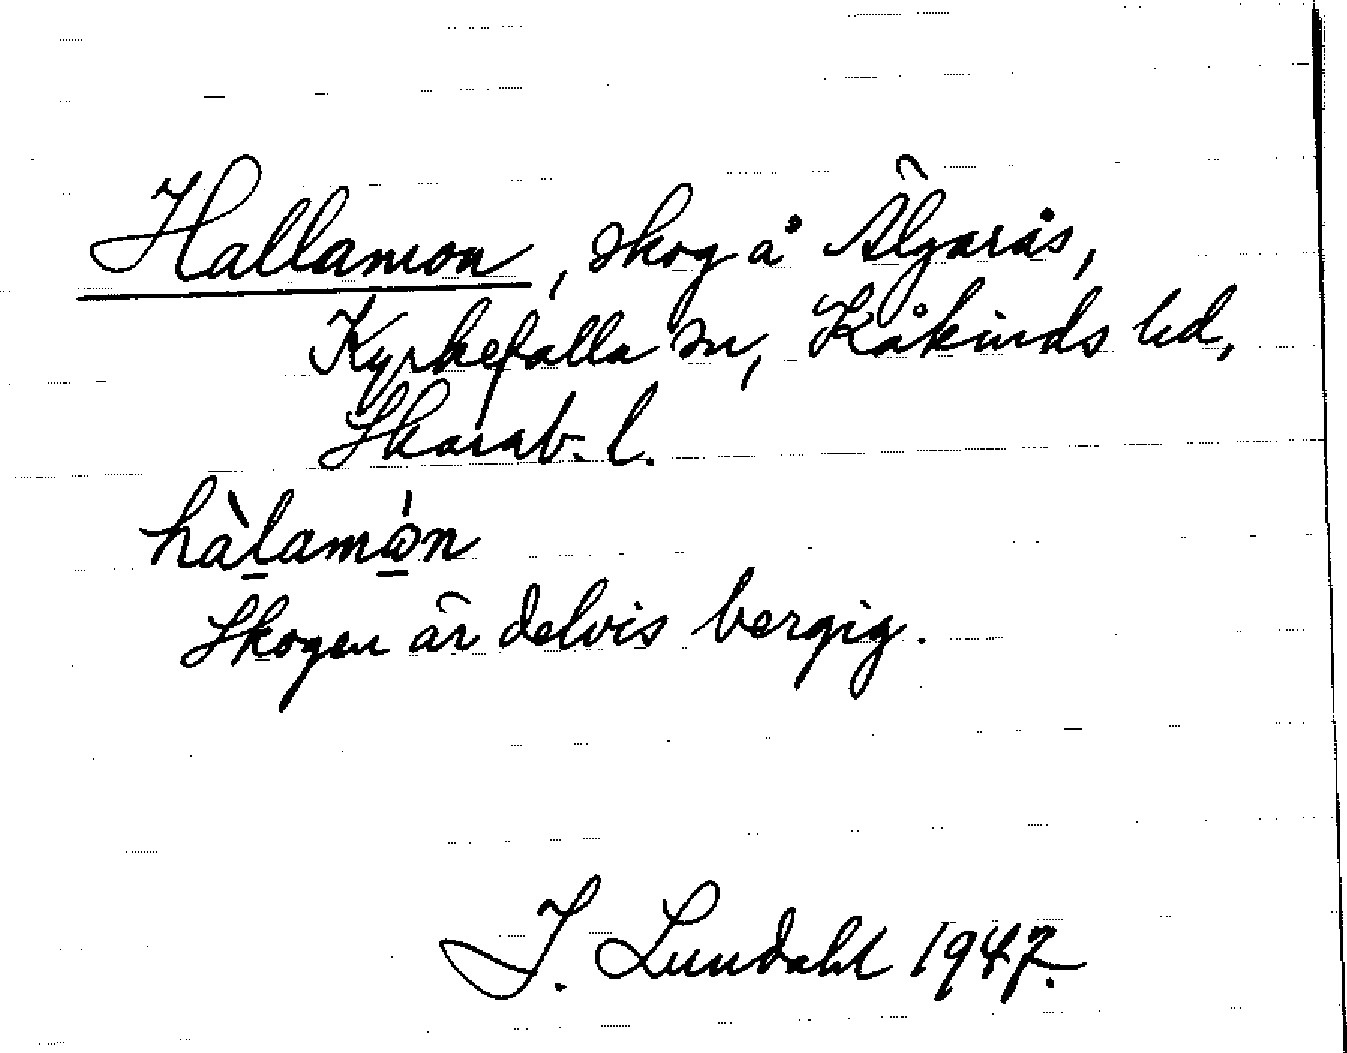 Hallamon, skog å Älgarås,
Kyrkefalla sn, Kåkinds hd,
Skarab. l.
hàlamón
Skogen är delvis bergig.
I. Lundahl 1947.